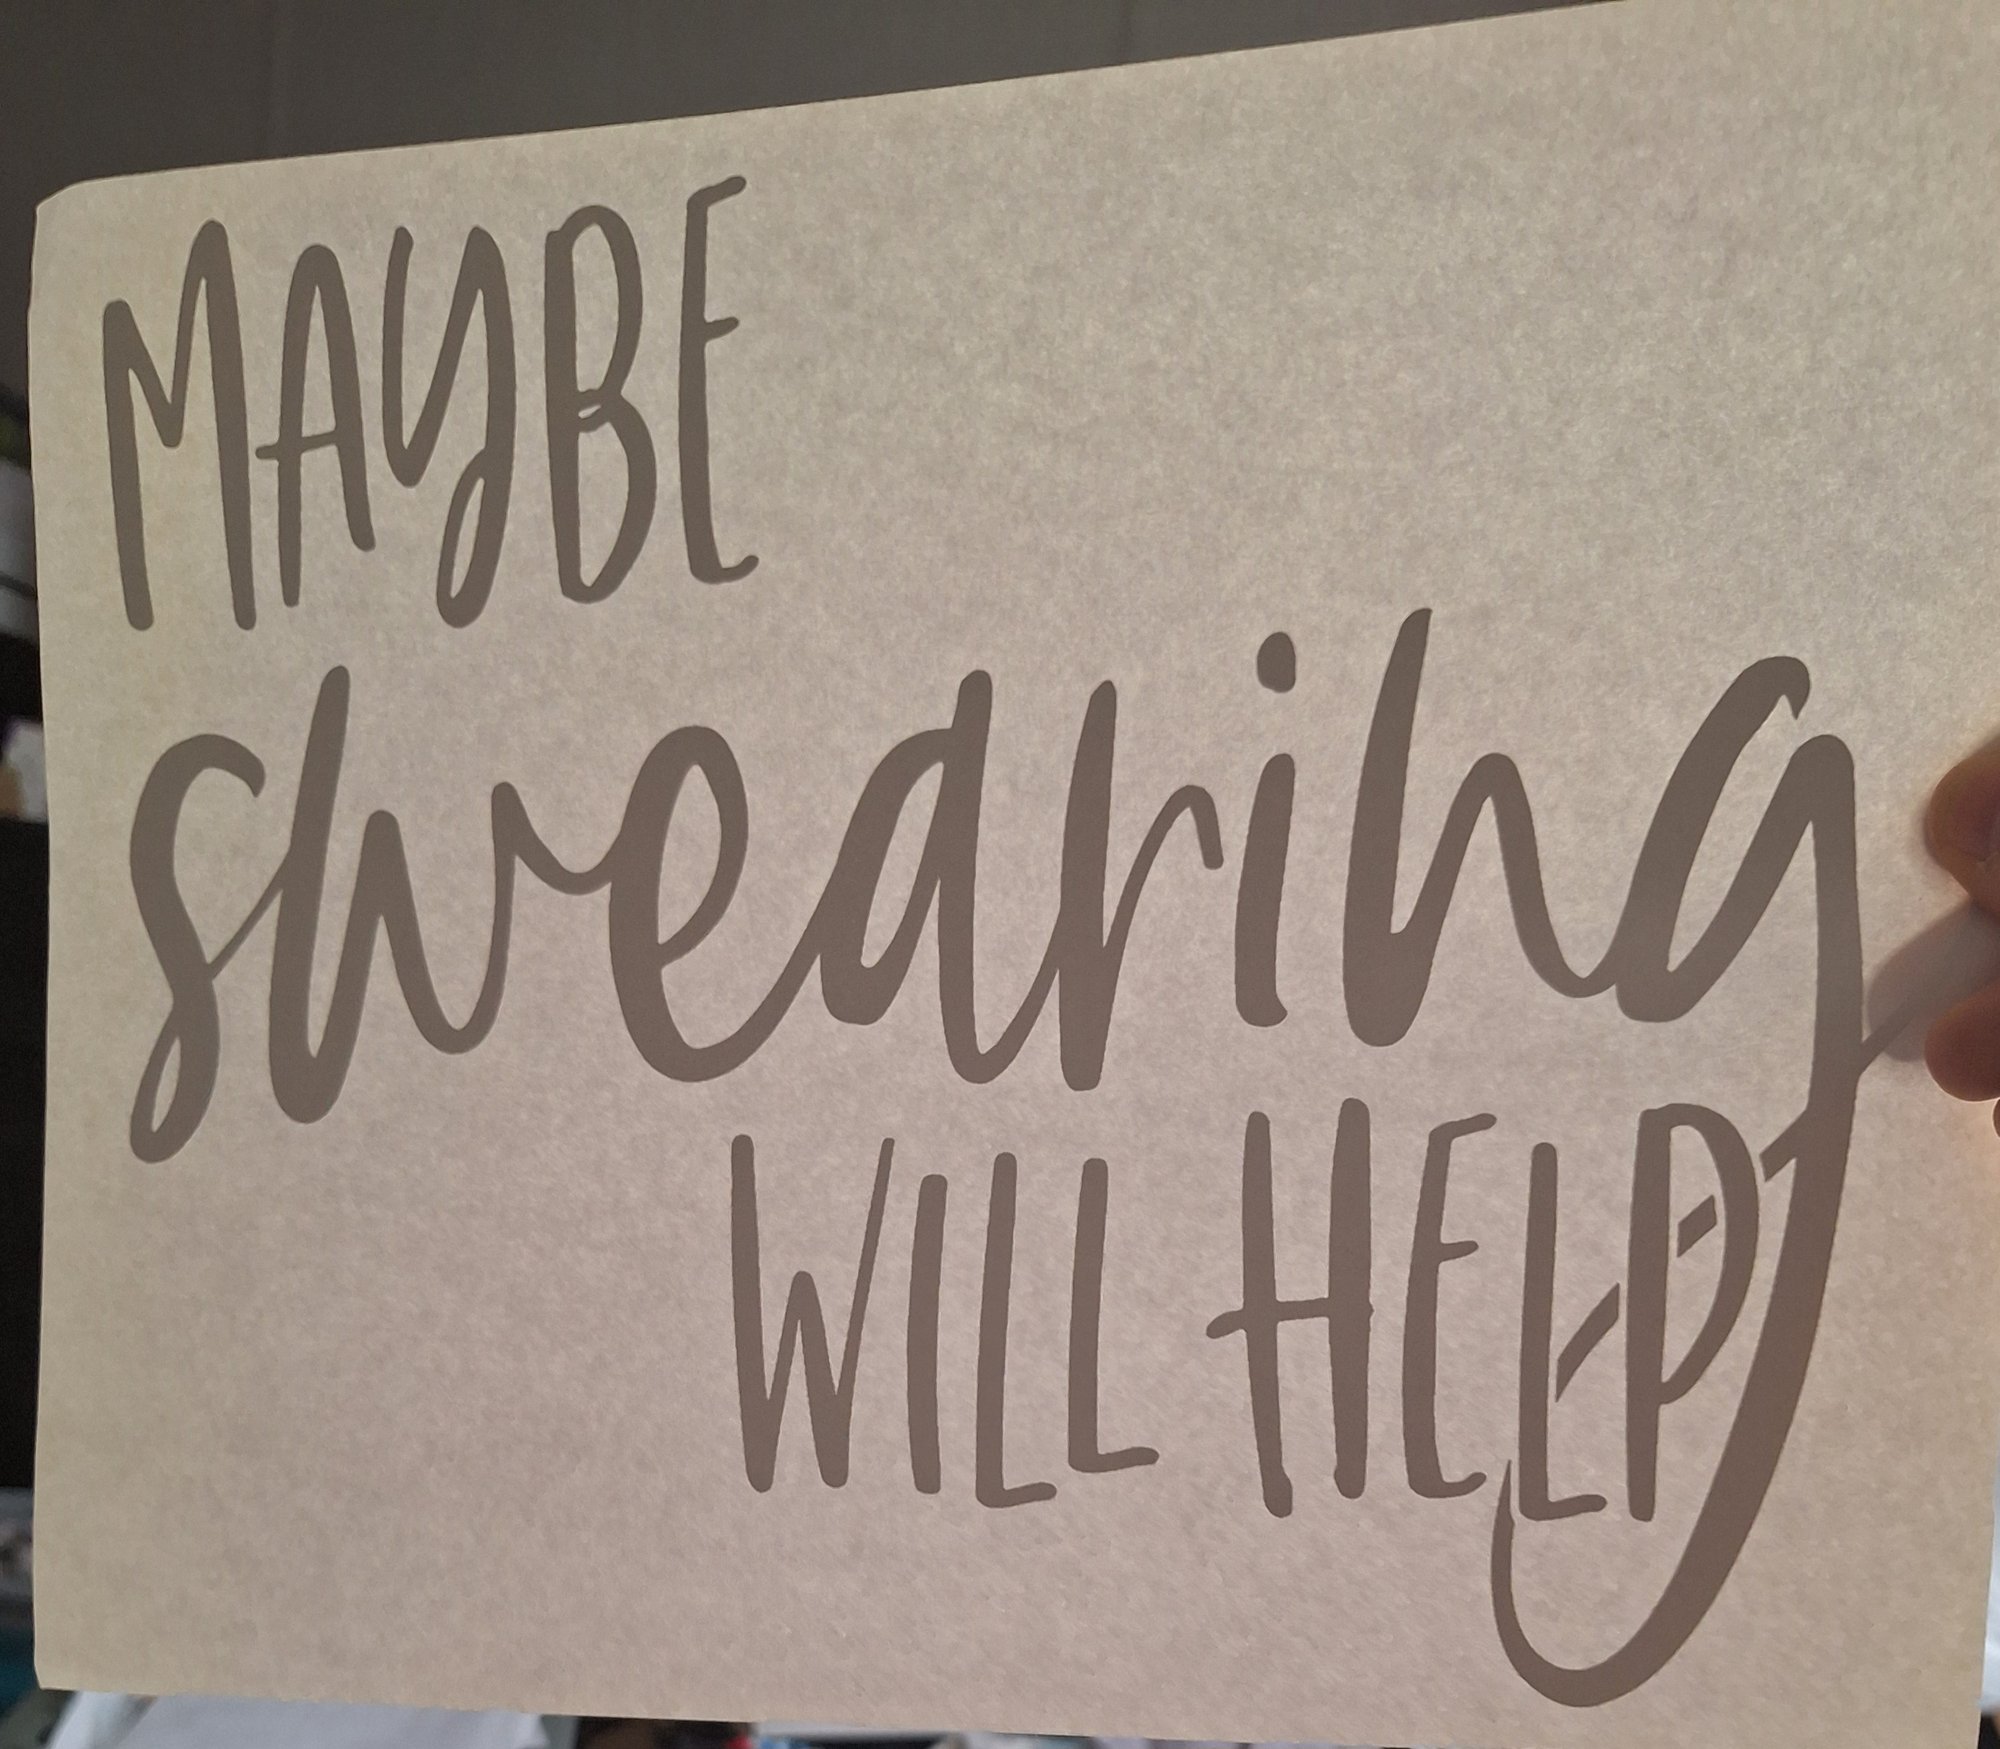 MAYBE
swearing
WILL HELP